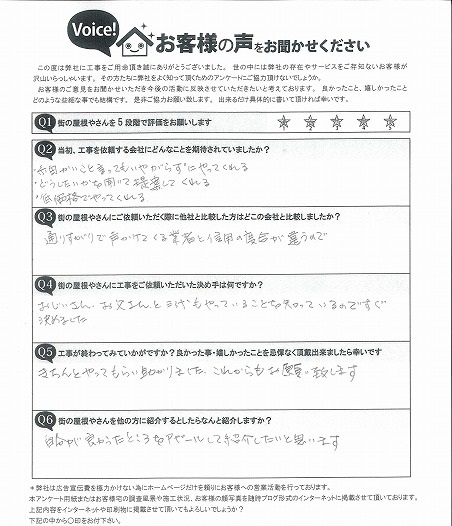 Voice! お客様の声をお聞かせください
この度は弊社に工事をご用命頂き誠にありがとうございました。 世の中には弊社の存在やサービスをご存知ないお客様が
沢山いらっしゃいます。 その方たちに弊社をよく知って頂くためのアンケートにご協力頂けないでしょうか。
お客様のご意見をお聞かせいただき今後の活動に反映させていただきたいと考えております。 良かったこと、嬉しかったこと
どのような些細な事でも結構です。 是非ご協力お願い致します。 出来るだけ具体的に書いて頂ければ幸いです。
Q1 街の屋根やさんを5段階で評価をお願いします
Q2 当初、工事を依頼する会社にどんなことを期待されていましたか？
・面白いこと言ってもいやがらずにやってくれる
・どうしたいかを聞いて提案してくれる
・低価格でやってくれる
Q3 街の屋根やさんにご依頼いただく際に他社と比較した方はどこの会社と比較しましたか？
通りすがりで声かけてくる業者と信用の度合が違うので
Q4 街の屋根やさんに工事をご依頼いただいた決め手は何ですか？
おじいさん、お父さんと三代もやっていることを知っているのですぐ
決めました
Q5 工事が終わってみていかがですか？良かった事・嬉しかったことを忌憚なく頂戴出来ましたら幸いです
きちんとやってもらい助かりました、これからもお願い致します
Q6 街の屋根やさんを他の方に紹介するとしたらなんと紹介しますか？
自分が良かったところをアピールして紹介したいと思います
＊弊社は広告宣伝費を極力かけない為にホームページだけを頼りにお客様への営業活動を行っております。
本アンケート用紙またはお客様宅の調査風景や施工状況、お客様の顔写真を随時ブログ形式のインターネットに掲載させて頂いております。
上記内容をインターネットや印刷物に掲載させて頂いてもよろしいでしょうか？
下記の中から〇印をお付け下さい。